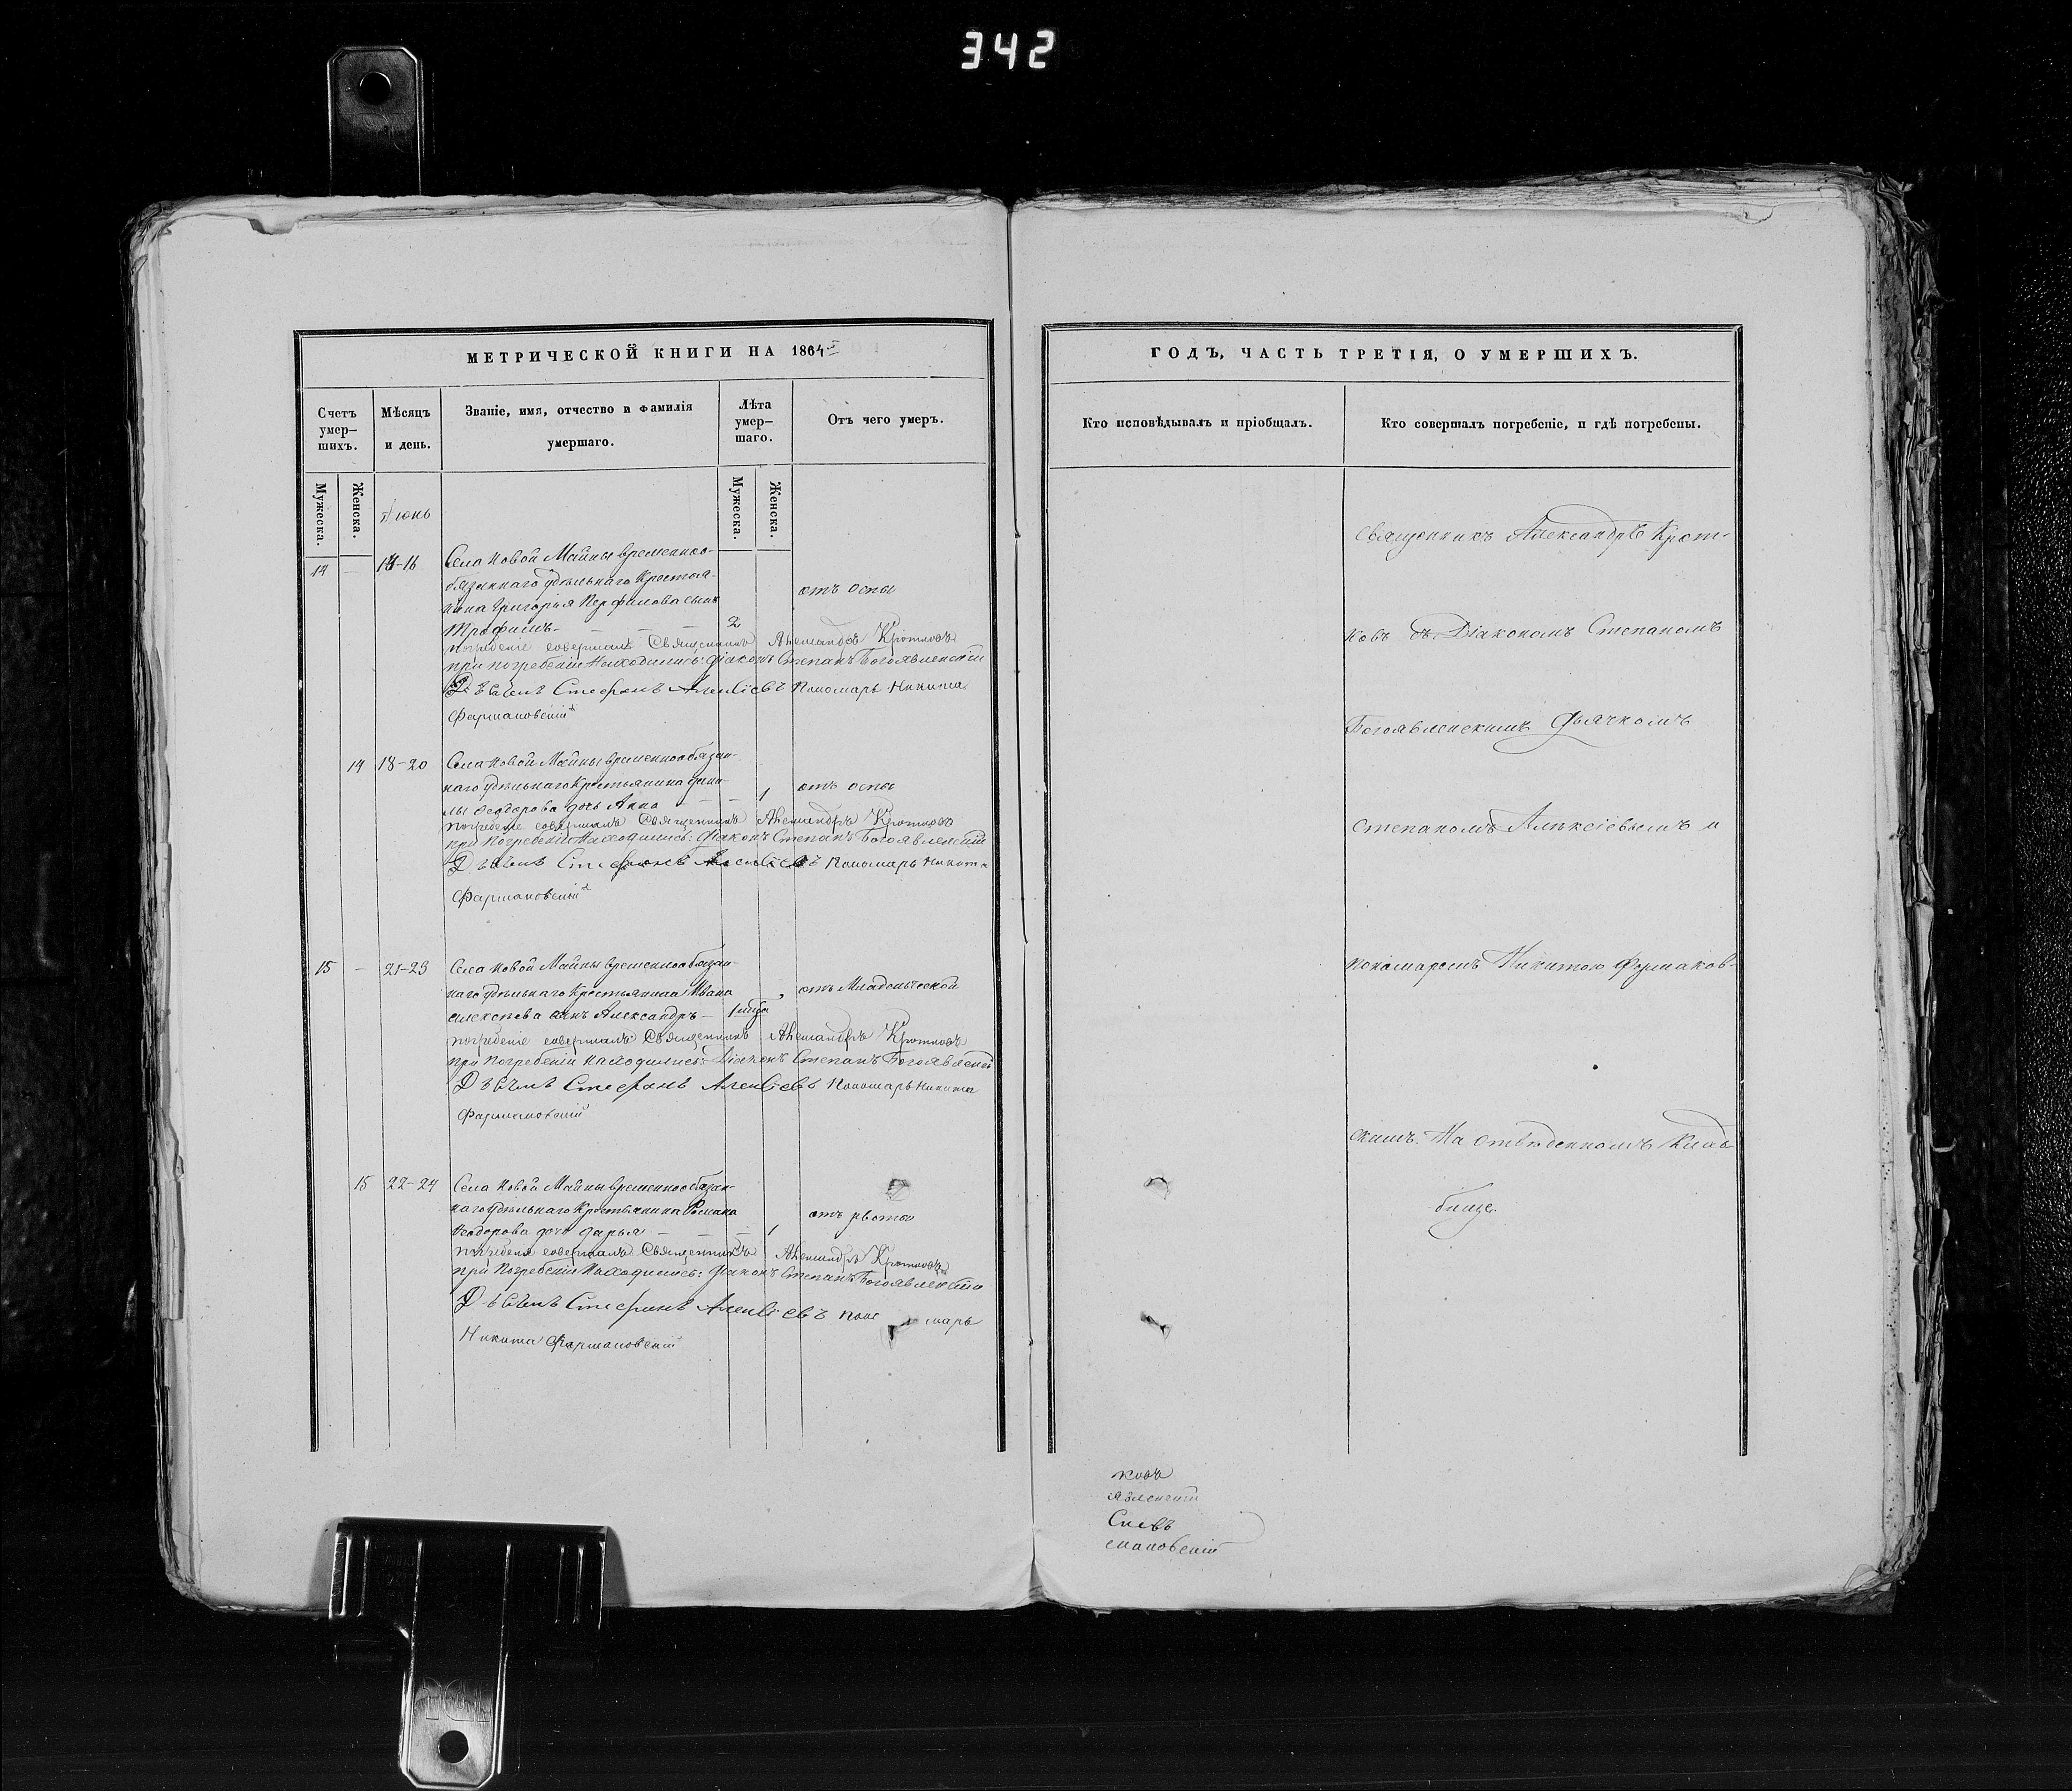 342
МЕТРИЧЕСКОЙ КНИГИ НА 1864й
Счетъ умер-шихъ.
Мѣсяцъ и день.
Званіе, имя, отчество и фамилія умершаго.
Лѣта умер-шаго.
Отъ чего умеръ.
Мужеска.
Женска.
Мужеска.
Женска.
Июнь
14 — 14-16 Села Новой Майны временноо-
бязаннаго удѣльнаго Крестья-
нина Григорія Перфилова сынъ
отъ оспы
Трофимъ — — — 2
погребеніе совершалъ Священникъ Александръ Кротковъ
при погребеніи находились: Діаконъ Степанъ Богоявленскій
Дьячекъ Стефанъ Алексіевъ Пономарь Никита
Фармаковскій
14 18-20 Села Новой Майны временнообязан-
наго удѣльнаго Крестьянина
Ѳеодорова дочь Анна — — 1
отъ оспы
погребеніе совершалъ Священникъ Александръ Кротковъ
при Погребеніи Находились: Діаконъ Степанъ Богоявленскій
Дьячекъ Стефанъ Алексіевъ Пономарь Никита
Фармаковскій
15 — 21-23 Села Новой Майны временнообязан-
наго удѣльнаго Крестьянина Ивана
отъ Младенческой
Алексѣева сынъ Александръ — 1 мѣся
погребеніе совершалъ Священникъ Александръ Кротковъ
при Погребеніи находились: Діаконъ Степанъ Богоявленскій
Дьячекъ Стефанъ Алексіевъ Пономарь Никита
Фармаковскій
15 22-24 Села Новой Майны временнообязан-
наго удѣльнаго Крестьянина Романа
отъ рвоты
Ѳеодорова дочь Дарья — — — 1
погребеніе совершалъ Священникъ Александръ Кротковъ
при Погребеніи Находились: Діаконъ Степанъ Богоявленскій
Дьячекъ Стефанъ Алексіевъ Поно марь
Никита Фармаковскій
ГОДЪ, ЧАСТЬ ТРЕТІЯ, О УМЕРШИХЪ.
Кто исповѣдывалъ и пріобщалъ.
Кто совершалъ погребеніе, и гдѣ погребены.
Священникъ Александръ Крот-
ковъ съ Діакономъ Степаномъ
Богоявленскимъ Дьячкомъ
Степаномъ Алексіевымъ и
Пономаремъ Никитою Фармаков-
скимъ. На отведенномъ Клад
бище.
ковъ
явленскій
сіевъ
маковскій